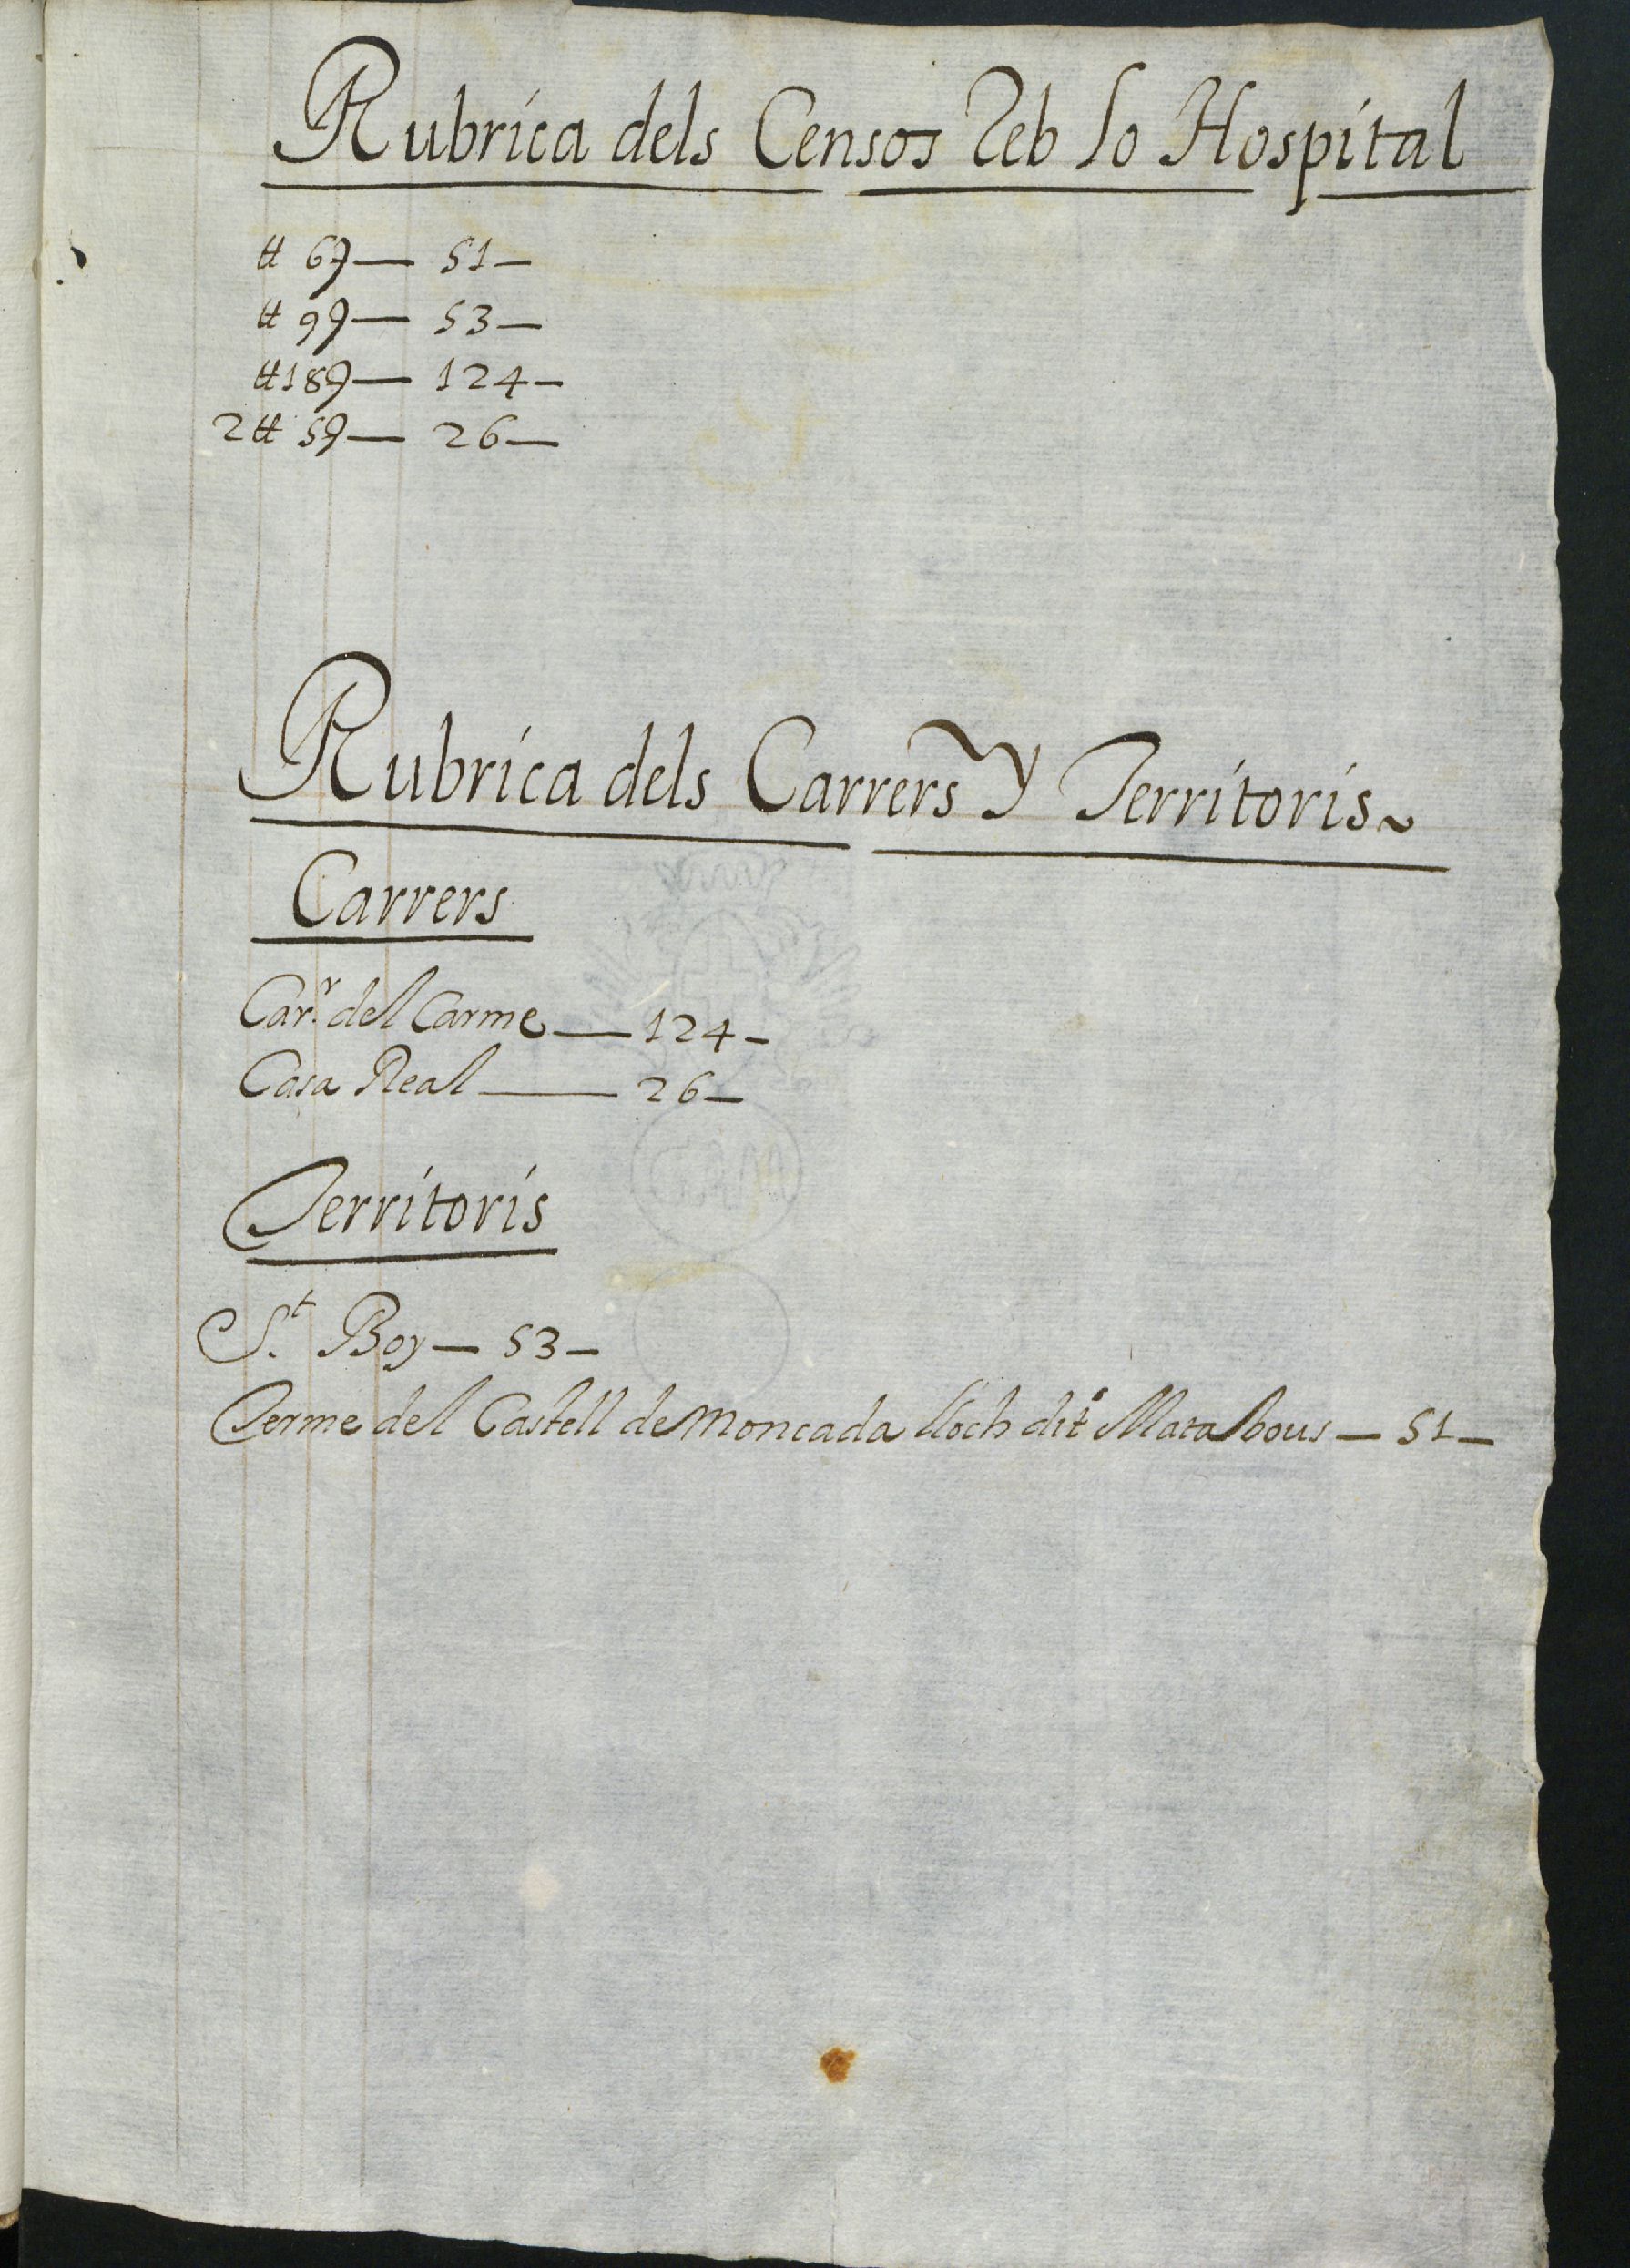 Rubrica dels Censos Reb lo Hospital
₶ 6 ſ — 51 —
₶ 9 ſ — 53 —
₶ 18 ſ — 124 —
2 ₶ 5 ſ — 26 —
Rubrica dels Carrers y Territoris
Carrers
Carr. del Carme — 124 —
Casa Real — 26 —
Territoris
St. Boy — 53 —
Terme del Castell de Moncada lloch dit Matabous — 51 —